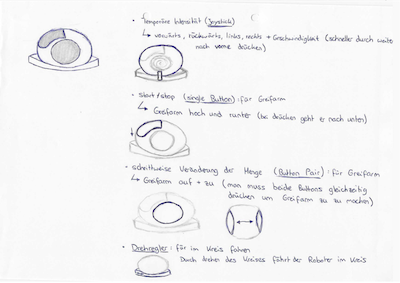 • Temporäre Intensität (Joystick)
↳ vorwärts, rückwärts, links, rechts + Geschwindigkeit (schneller durch weiter
nach vorne drücken)
• start/stop (single Button): für Greifarm
↳ Greifarm hoch und runter (bei drücken geht er nach unten)
• schrittweise Veränderung der Menge (Button Pair): für Greifarm
↳ Greifarm auf + zu (man muss beide Buttons gleichzeitig
drücken um Greifarm zu zu machen)
• Drehregler: für im Kreis fahren
Durch drehen des Kreises fährt der Roboter im Kreis